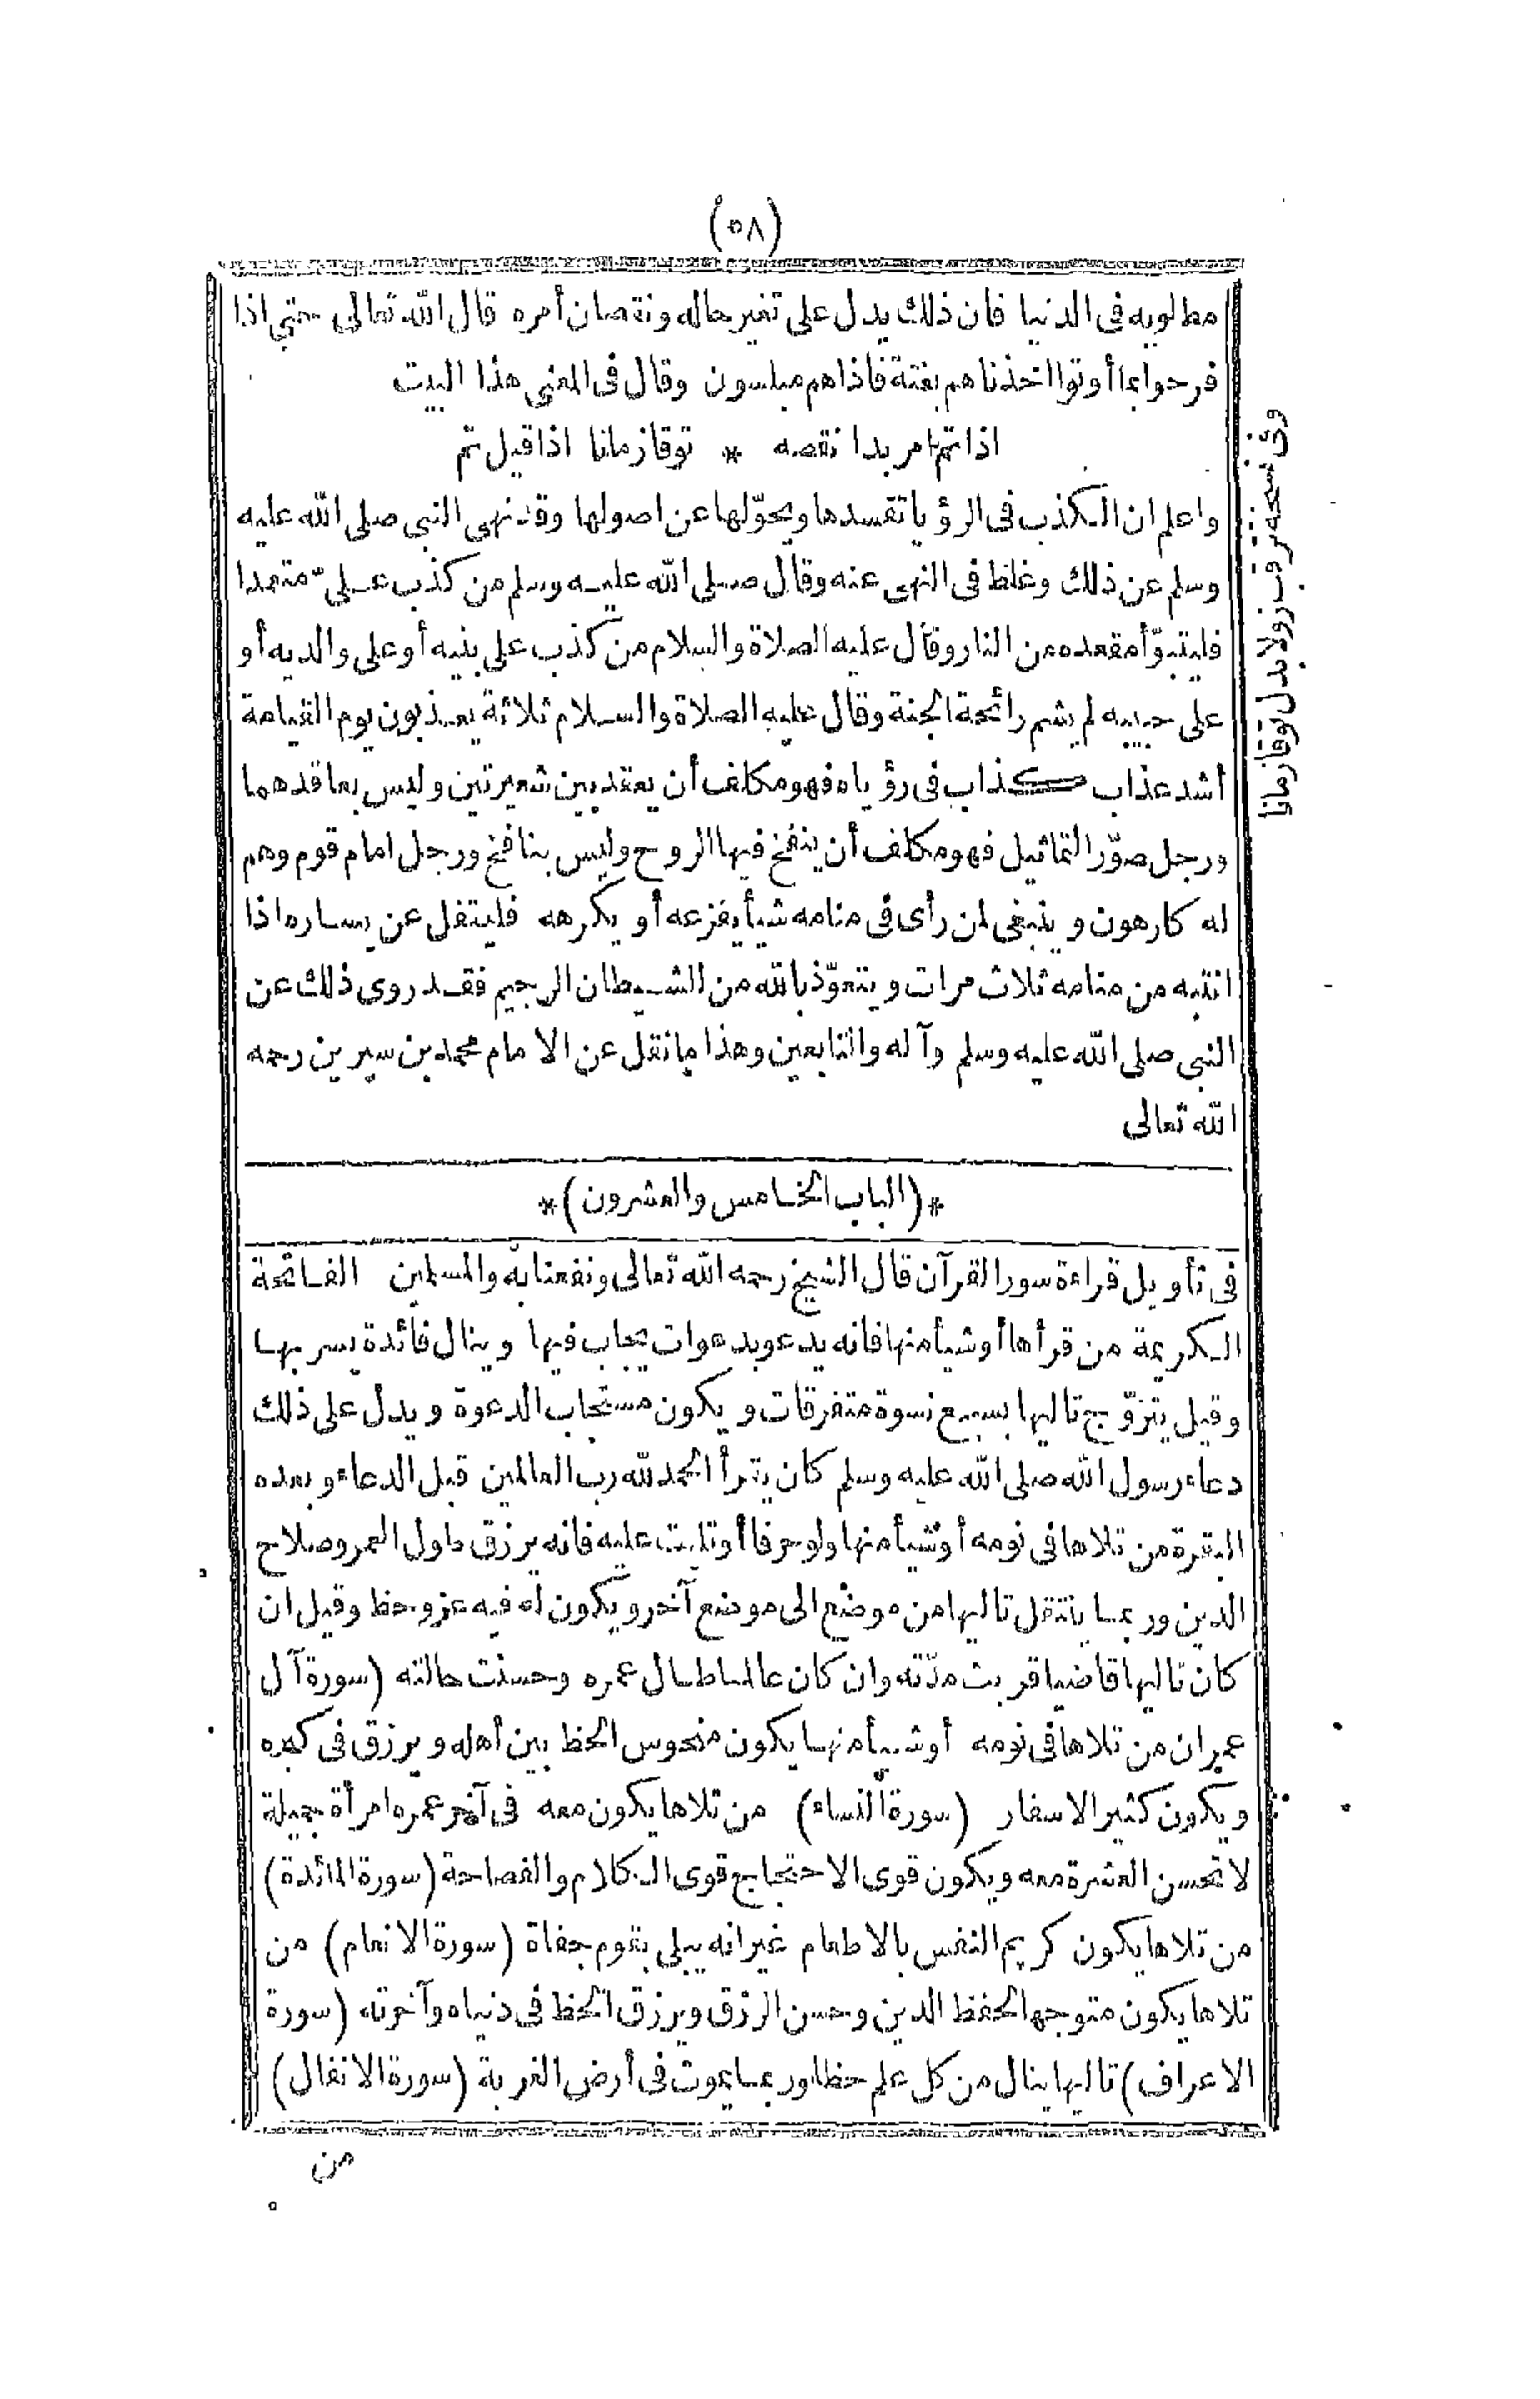 (٥٨)
مطلوبه فى الدنيا فان ذلك يدل على تغير حاله ونقصان أمره قال الله تعالى حتى اذا
فرحوا بما أوتوا اخذناهم بغتة فاذاهم مبلسون وقال فى المعنى هذا البيت
اذا تم امر بدا نقصه * توقا زمانا اذا قيل تم
واعلم ان الكذب فى الرؤيا تفسدها ويحوّلها عن اصولها وقد نهى النبى صلى الله عليه
وسلم عن ذلك وغلظ فى النهى عنه وقال صلى الله عليه وسلم من كذب علىّ متعمدا
فليتبوّأ مقعده من النار وقال عليه الصلاة والسلام من كذب على بنيه أو على والديه أو
على حبيبه لم يشم رائحة الجنة وقال عليه الصلاة والسلام ثلاثة يعذبون يوم القيامة
أشد عذاب كذاب فى رؤياه فهو مكلف أن يعقد بين شعيرتين وليس بعاقدهما
ورجل صوّر التماثيل فهو مكلف أن ينفخ فيها الروح وليس بنافخ ورجل امام قوم وهم
له كارهون وينبغى لمن رأى فى منامه شيأ يفزعه أو يكرهه فليتفل عن يساره اذا
انتبه من منامه ثلاث مرات ويتعوّذ بالله من الشيطان الرجيم فقد روى ذلك عن
النبى صلى الله عليه وسلم وآله والتابعين وهذا ما نقل عن الامام محمد بن سيرين رحمه
الله تعالى
*(الباب الخامس والعشرون)*
فى تأويل قراءة سور القرآن قال الشيخ رحمه الله تعالى ونفعنا به والمسلمين الفاتحة
الكريمة من قرأها أو شيأ منها فانه يدعو بدعوات يجاب فيها وينال فائدة يسر بها
وقيل يتزوّج تاليها بسبع نسوة متفرقات ويكون مستجاب الدعوة ويدل على ذلك
دعاء رسول الله صلى الله عليه وسلم كان يقرأ الحمد لله رب العالمين قبل الدعاء وبعده
البقرة من تلاها فى نومه أو شيأ منها ولو حرفا أو تليت عليه فانه يرزق طول العمر وصلاح
الدين وربما ينتقل تاليها من موضع الى موضع آخر ويكون له فيه عز وحظ وقيل ان
كان تاليها قاضيا قربت مدّته وان كان عالما طال عمره وحسنت حالته (سورة آل
عمران من تلاها فى نومه أو شيأ منها يكون منحوس الحظ بين أهله ويرزق فى كبره
ويكون كثير الاسفار (سورة النساء) من تلاها يكون معه فى آخر عمره امرأة جميلة
لا تحسن العشرة معه ويكون قوى الاحتجاج قوى الكلام والفصاحة (سورة المائدة)
من تلاها يكون كريم النفس بالاطعام غير انه يبلى بقوم جفاة (سورة الانعام) من
تلاها يكون متوجها لحفظ الدين وحسن الرزق ويرزق الحظ فى دنياه وآخرته (سورة
الاعراف) تاليها ينال من كل علم حظا وربما يموت فى أرض الغربة (سورة الانفال)
من
وفى نسخة ترقب زولا بدل توقا زمانا